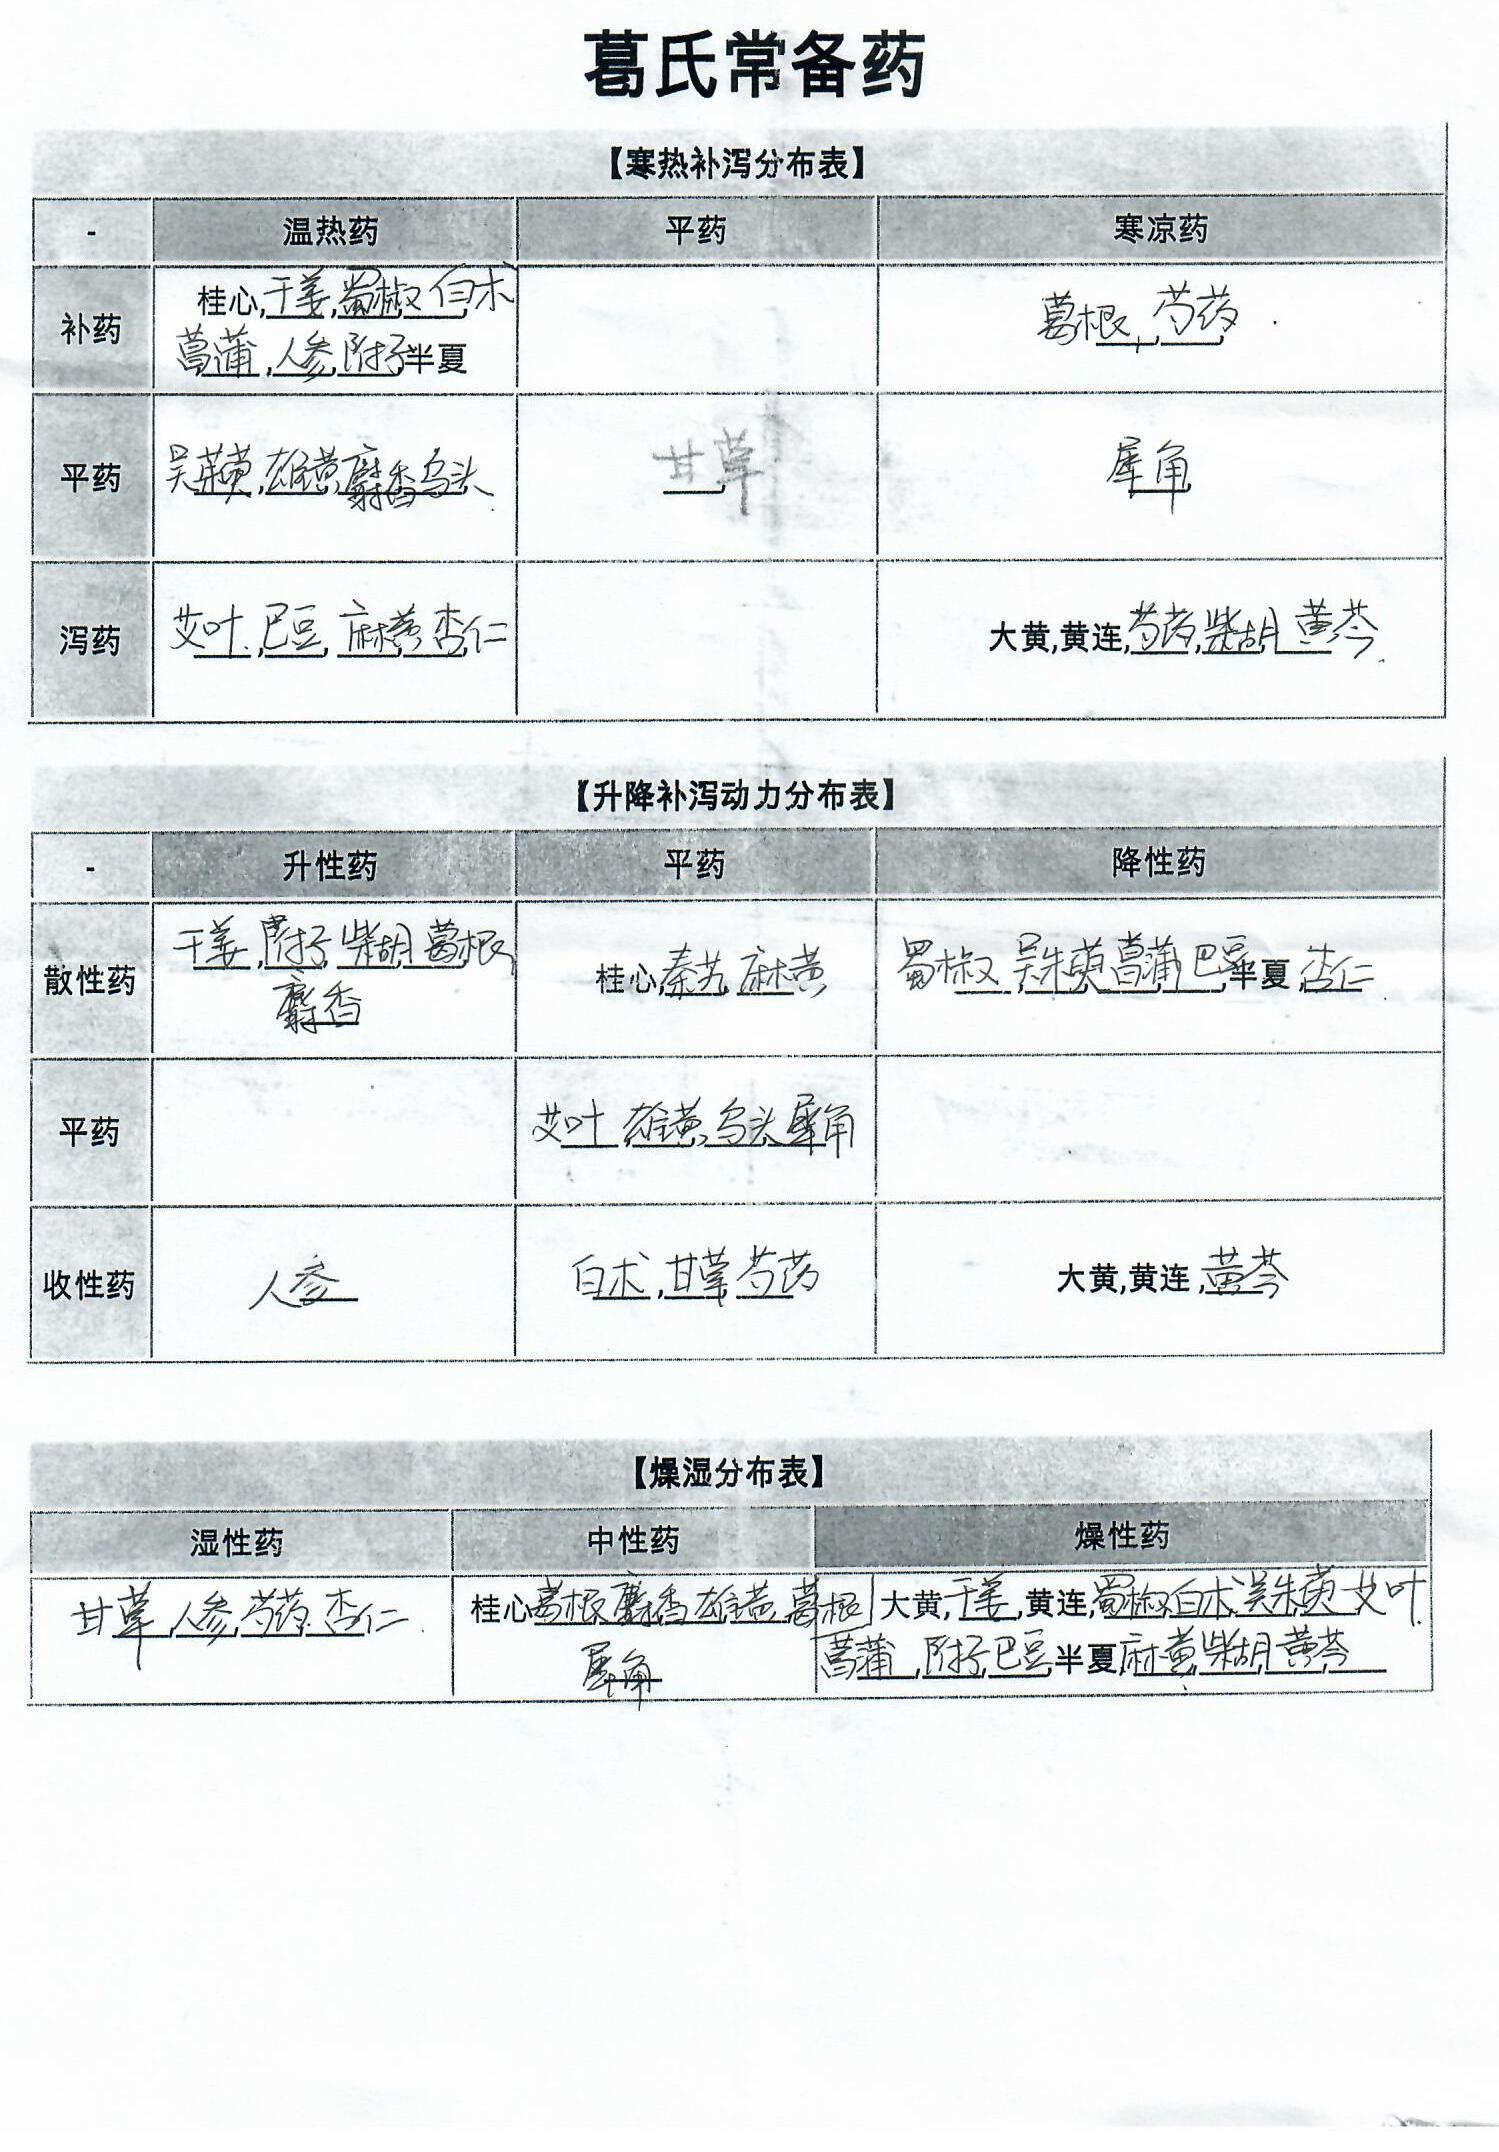 葛氏常备药
【寒热补泻分布表】
- 温热药 平药 寒凉药
补药 桂心,干姜,蜀椒,白术 葛根,芍药.
菖蒲,人参,附子半夏
平药 吴茱萸,雄黄,麝香乌头. 甘草 犀角
泻药 艾叶,巴豆,麻黄,杏仁 大黄,黄连,芍药,柴胡,黄芩.
【升降补泻动力分布表】
- 升性药 平药 降性药
散性药 干姜,附子,柴胡,葛根, 桂心,秦艽,麻黄 蜀椒,吴朱萸,菖蒲,巴豆半夏,杏仁
麝香
平药 艾叶,雄黄,乌头,犀角
收性药 人参 白术,甘草,芍药 大黄,黄连,黄芩
【燥湿分布表】
湿性药 中性药 燥性药
甘草,人参,芍药,杏仁. 桂心,葛根,麝香,雄黄,葛根 大黄,干姜,黄连,蜀椒,白术,吴朱萸,艾叶.
犀角 菖蒲,附子,巴豆,半夏,麻黄,柴胡,黄芩